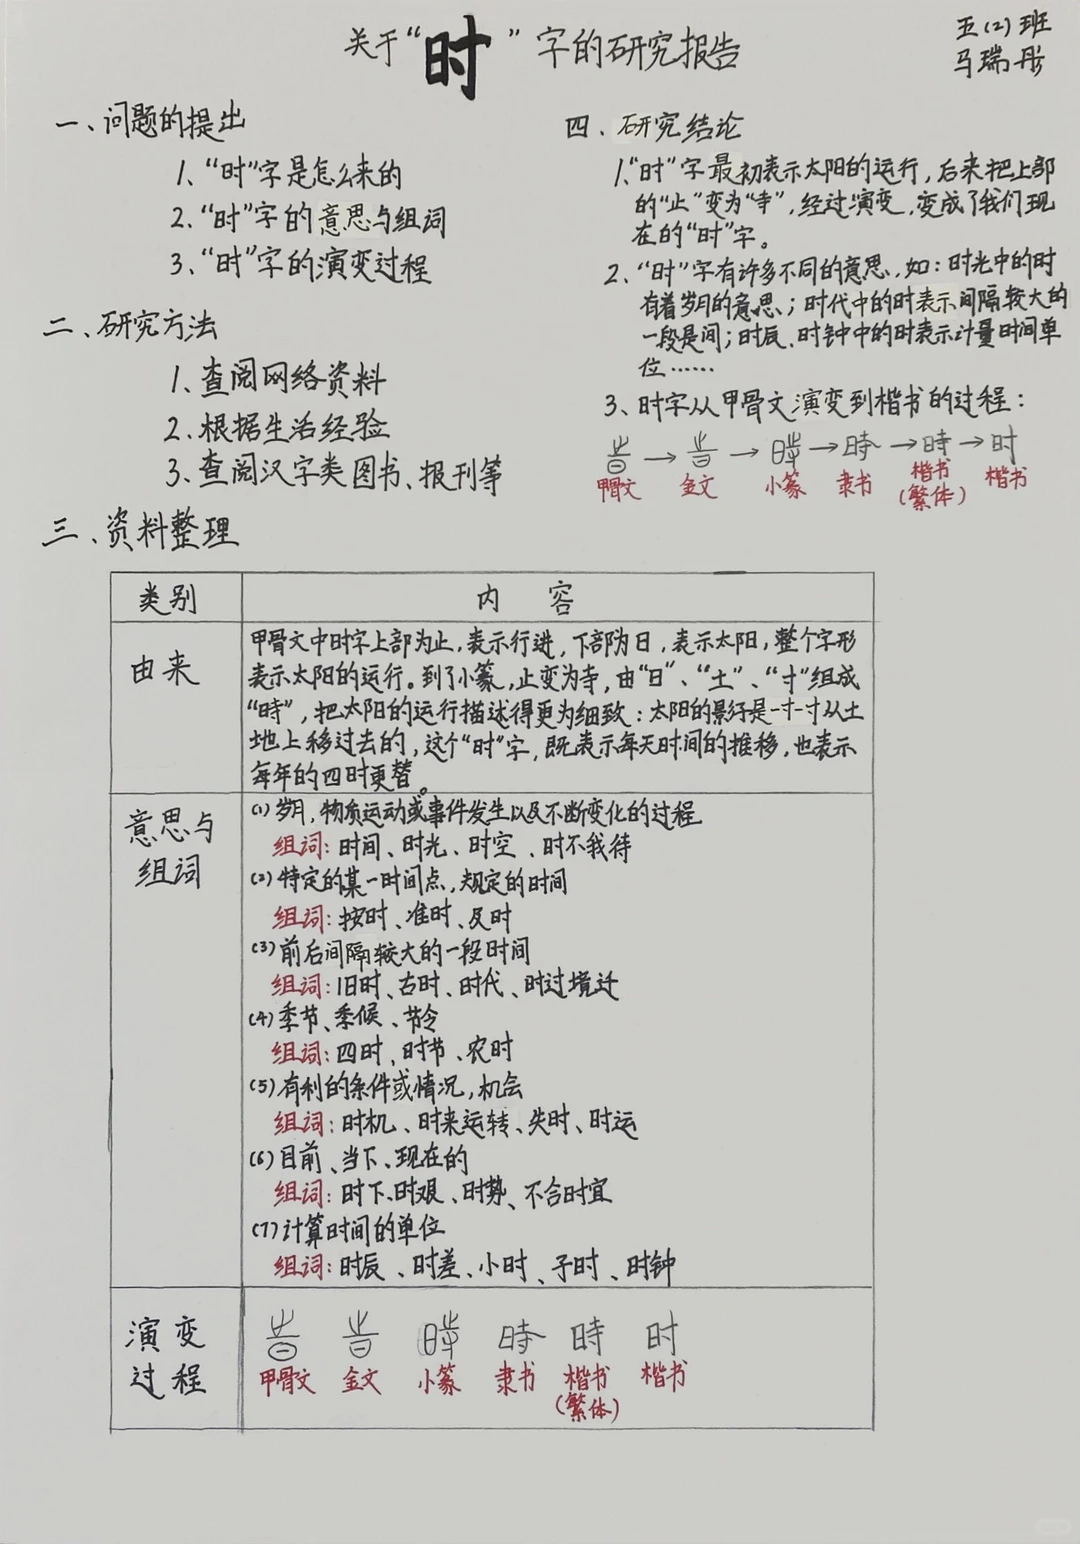 关于“时”字的研究报告
五(2)班
马瑞彤
一、问题的提出
1、“时”字是怎么来的
2、“时”字的意思与组词
3、“时”字的演变过程
二、研究方法
1、查阅网络资料
2、根据生活经验
3、查阅汉字类图书、报刊等
三、资料整理
四、研究结论
1、“时”字最初表示太阳的运行，后来把上部
的“止”变为“寺”，经过演变，变成了我们现
在的“时”字。
2、“时”字有许多不同的意思，如：时光中的时
有着岁月的意思；时代中的时表示间隔较大的
一段是间；时辰、时钟中的时表示计量时间单
位……
3、时字从甲骨文演变到楷书的过程：
→ → → 時 → 時 → 时
甲骨文 金文 小篆 隶书 楷书(繁体) 楷书
类别 内容
由来
甲骨文中时字上部为止，表示行进，下部为日，表示太阳，整个字形
表示太阳的运行。到了小篆，止变为寺，由“日”、“土”、“寸”组成
“時”，把太阳的运行描述得更为细致：太阳的影子是一寸一寸从土
地上移过去的，这个“时”字，既表示每天时间的推移，也表示
每年的四时更替。
意思与
组词
(1)岁月，物质运动或事件发生以及不断变化的过程
组词：时间、时光、时空、时不我待
(2)特定的某一时间点，规定的时间
组词：按时、准时、及时
(3)前后间隔较大的一段时间
组词：旧时、古时、时代、时过境迁
(4)季节、季候、节令
组词：四时、时节、农时
(5)有利的条件或情况，机会
组词：时机、时来运转、失时、时运
(6)目前、当下、现在的
组词：时下、时艰、时势、不合时宜
(7)计算时间的单位
组词：时辰、时差、小时、子时、时钟
演变
过程
時 時 时
甲骨文 金文 小篆 隶书 楷书 楷书
(繁体)